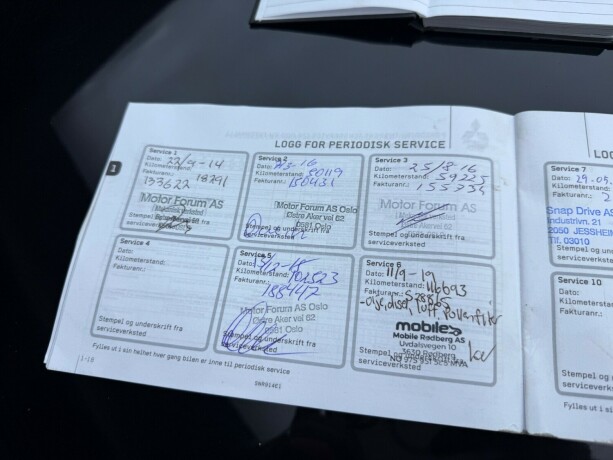 LOGG FOR PERIODISK SERVICE
1
Service 1
Dato: 22/9-14
Kilometerstand: 18291
Fakturanr.: 133622
Motor Forum AS
Stempel og underskrift fra
serviceverksted
Service 2
Dato:
Kilometerstand: 30119
Fakturanr.: 150431
Motor Forum AS Oslo
Østre Aker vei 62
0581 Oslo
Stempel og underskrift fra
serviceverksted
Service 3
Dato: 25/8-16
Kilometerstand: 59225
Fakturanr.:
Motor Forum AS
Stempel og underskrift fra
serviceverksted
Service 4
Dato:
Kilometerstand:
Fakturanr.:
Stempel og underskrift fra
serviceverksted
Service 5
Dato:
Kilometerstand: 102523
Fakturanr.: 188447
Motor Forum AS Oslo
Østre Aker vei 62
0581 Oslo
Stempel og underskrift fra
serviceverksted
Service 6
Dato: 11/9-19
Kilometerstand: 116693
Fakturanr.: 528865
-olje, diesel, luft, Pollenfilter
mobile
Mobile Rødberg AS
Uvdalsvegen 10
3630 Rødberg
Stempel og underskrift fra
serviceverksted
Service 7
Dato: 29.03.
Kilometerstand:
Fakturanr.: 2
Snap Drive AS
Industrivn. 21
2050 JESSHEIM
Tlf. 03010
Stempel og
serviceverksted
Service 10
Dato:
Kilometerstand:
Fakturanr.:
Stempel og un
serviceverksted
Fylles ut i sin helhet hver gang bilen er inne til periodisk service
Fylles ut i sin
1-18